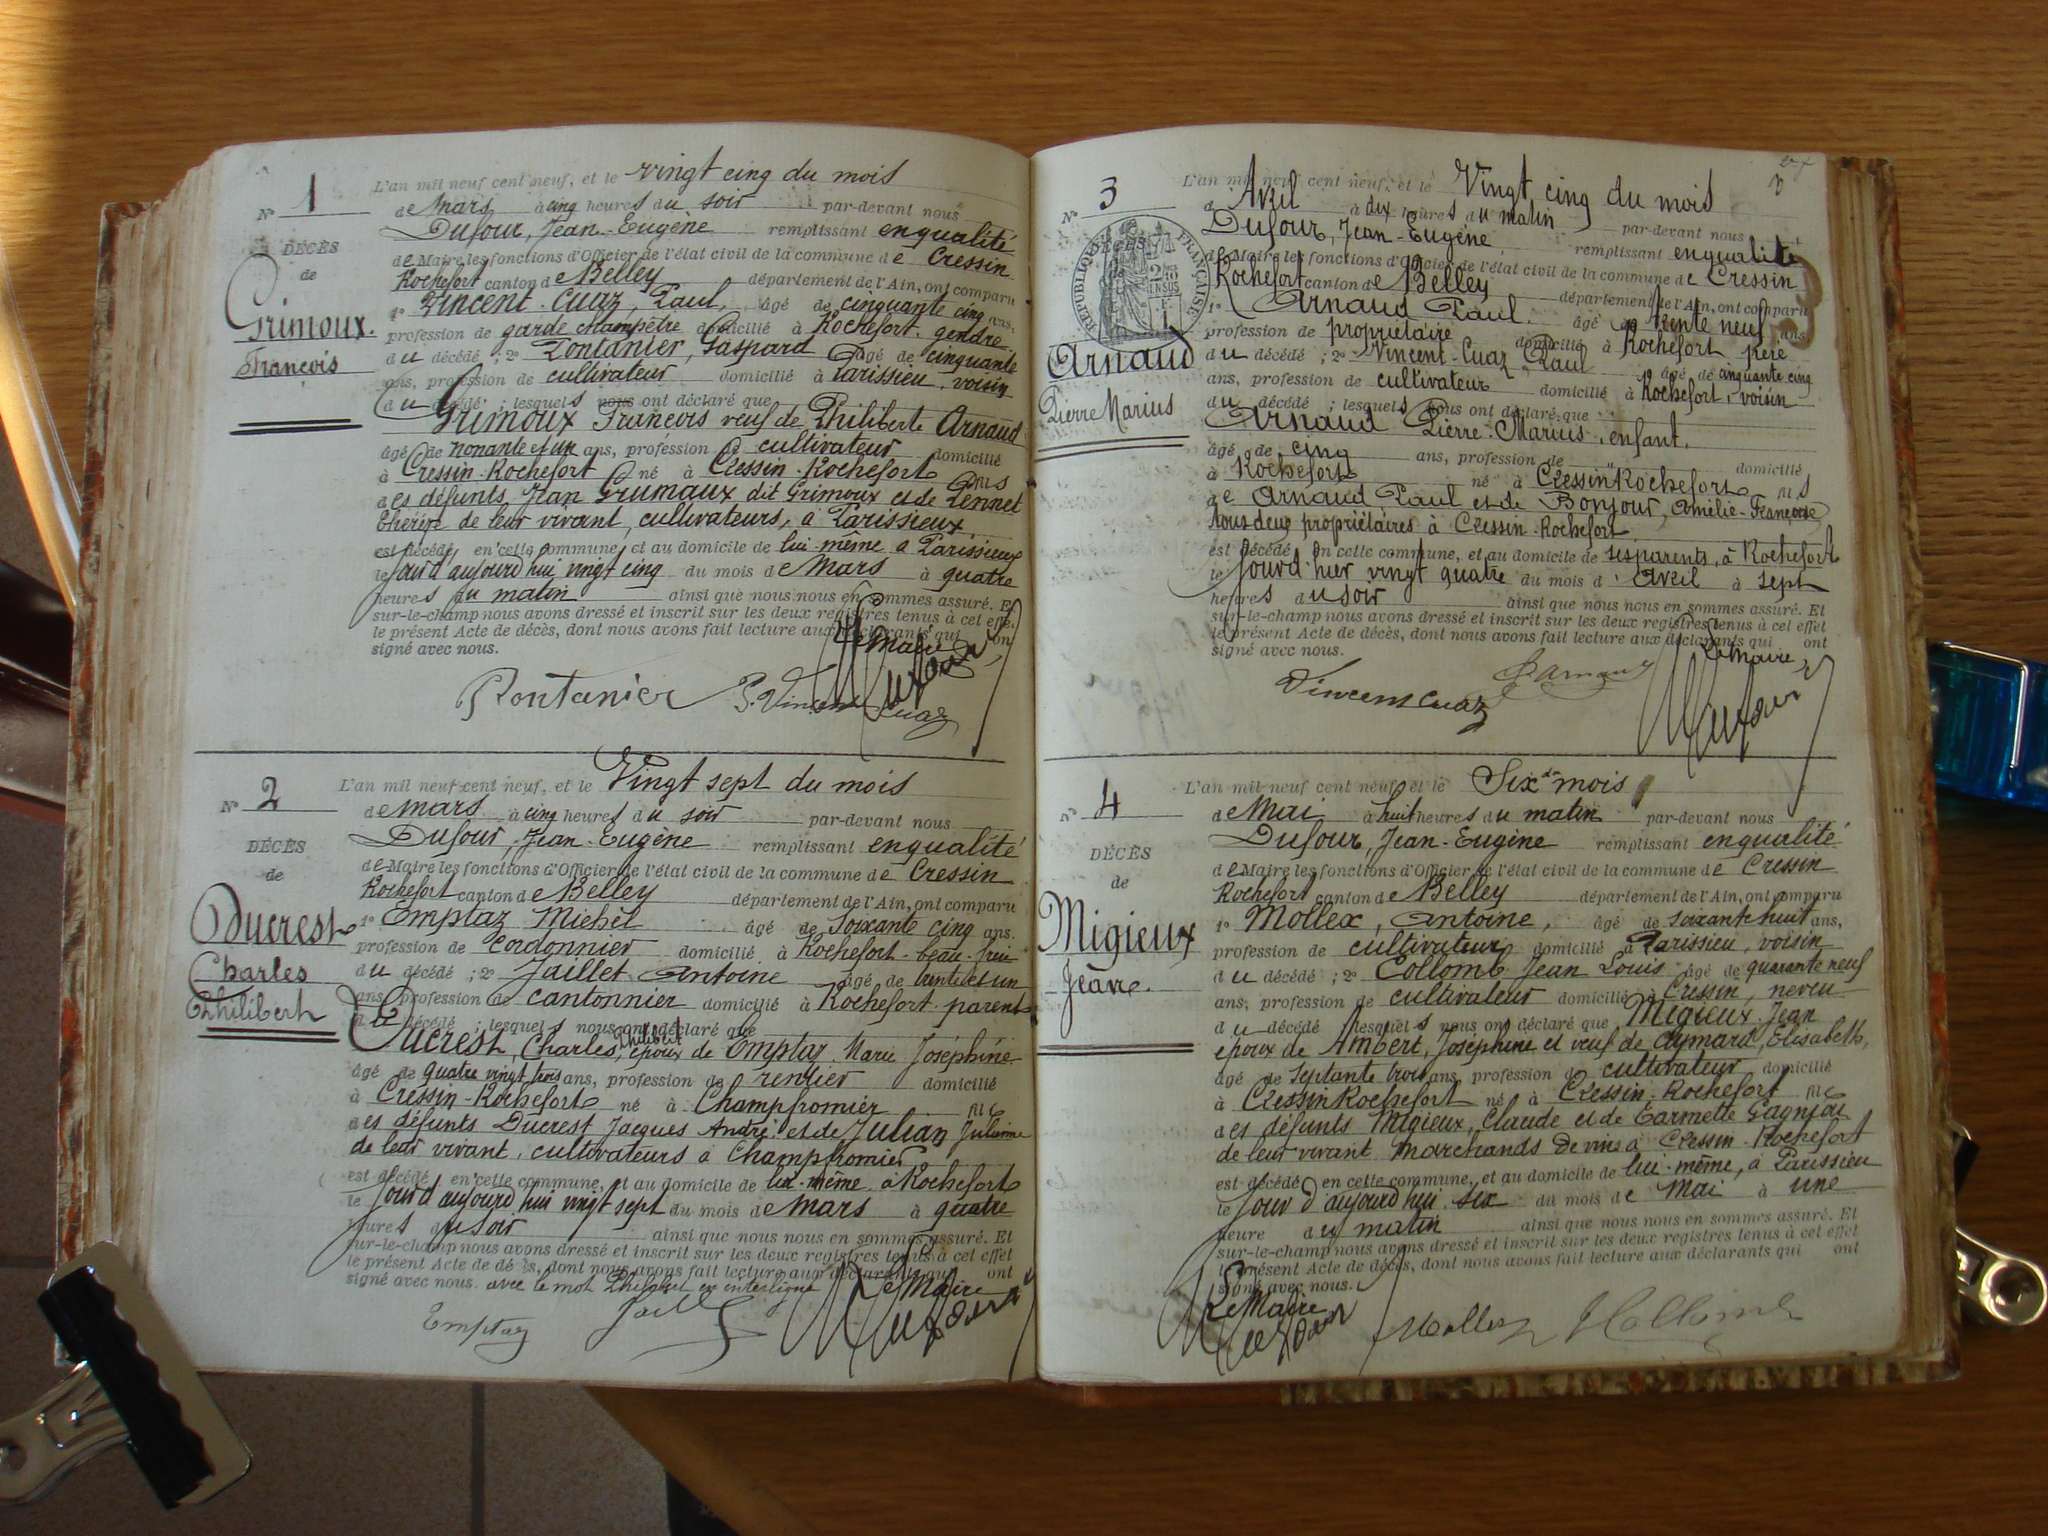 N° 1
DÉCÈS
de
Grimoux
François
L'an mil neuf cent neuf, et le vingt cinq du mois
de Mars à cinq heures du soir par-devant nous
Dufour, Jean-Eugène remplissant en qualité
de Maire les fonctions d'Officier de l'état civil de la commune de Cressin
Rochefort canton de Belley département de l'Ain, ont comparu
1° Vincent-Cuaz, Paul, âgé de cinquante cinq ans,
profession de garde champêtre domicilié à Rochefort, gendre
du décédé ; 2° Pontanier, Gaspard âgé de cinquante
ans, profession de cultivateur domicilié à Parissieu, voisin
du décédé ; lesquels nous ont déclaré que
Grimoux François veuf de Philiberte Arnaud
âgé de nonante et un ans, profession de cultivateur domicilié
à Cressin-Rochefort né à Cressin-Rochefort fils
des défunts Jean Grumaux dit Grimoux et de Pennet
Thérèse de leur vivant, cultivateurs, à Parissieux
est décédé en cette commune, et au domicile de lui-même à Parissieux
le jour d'aujourd'hui vingt cinq du mois de Mars à quatre
heures du matin ainsi que nous nous en sommes assuré. Et
sur-le-champ nous avons dressé et inscrit sur les deux registres tenus à cet effet
le présent Acte de décès, dont nous avons fait lecture aux déclarants qui ont
signé avec nous.
Le Maire
Pontanier P. Vincent Cuaz Dufour
N° 2
DÉCÈS
de
Ducrest
Charles
Philibert
L'an mil neuf cent neuf, et le Vingt sept du mois
de mars à cinq heures du soir par-devant nous
Dufour, Jean-Eugène remplissant en qualité
de Maire les fonctions d'Officier de l'état civil de la commune de Cressin
Rochefort canton de Belley département de l'Ain, ont comparu
1° Emptaz Michel âgé de Soixante cinq ans.
profession de Cordonnier domicilié à Rochefort beau-frère
du décédé ; 2° Jaillet Antoine âgé de trente et un
ans, profession de cantonnier domicilié à Rochefort parent
du décédé ; lesquels nous ont déclaré que
Philibert
Ducrest, Charles, époux de Emptaz Marie Joséphine
âgé de quatre vingt trois ans, profession de rentier domicilié
à Cressin-Rochefort né à Champfromier fils
des défunts Ducrest Jacques André et de Julian Julienne
de leur vivant, cultivateurs à Champfromier
est décédé en cette commune, et au domicile de lui-même à Rochefort
le jour d'aujourd'hui vingt sept du mois de Mars à quatre
heures du soir ainsi que nous nous en sommes assuré. Et
sur-le-champ nous avons dressé et inscrit sur les deux registres tenus à cet effet
le présent Acte de décès, dont nous avons fait lecture aux déclarants qui ont
signé avec nous. avec le mot Philibert en interligne Le Maire
Emptaz Jaillet Dufour
N° 3
DÉCÈS
RÉPUBLIQUE FRANÇAISE
Arnaud
Pierre Marius
L'an mil neuf cent neuf, et le Vingt cinq du mois
d' Avril à dix heures du matin par-devant nous
Dufour, Jean-Eugène remplissant en qualité
de Maire les fonctions d'Officier de l'état civil de la commune de Cressin
Rochefort canton de Belley département de l'Ain, ont comparu
1° Arnaud Paul. âgé de trente neuf ans,
profession de propriétaire domicilié à Rochefort père
du décédé ; 2° Vincent-Cuaz Paul âgé de cinquante cinq
ans, profession de cultivateur domicilié à Rochefort, voisin
du décédé ; lesquels nous ont déclaré que
Arnaud Pierre-Marius, enfant,
âgé de cinq ans, profession de domicilié
à Rochefort né à Cressin Rochefort fils
de Arnaud Paul et de Bonjour, Amélie-Françoise
tous deux propriétaires à Cressin-Rochefort
est décédé en cette commune, et au domicile de ses parents, à Rochefort
le jour d'hier vingt quatre du mois d' Avril à sept
heures du soir ainsi que nous nous en sommes assuré. Et
sur-le-champ nous avons dressé et inscrit sur les deux registres tenus à cet effet
le présent Acte de décès, dont nous avons fait lecture aux déclarants qui ont
signé avec nous.
Le Maire
Vincent Cuaz P Arnaud Dufour
N° 4
DÉCÈS
de
Migieux
Jean.
L'an mil neuf cent neuf et le Six du mois
de Mai à huit heures du matin par-devant nous
Dufour, Jean-Eugène remplissant en qualité
de Maire les fonctions d'Officier de l'état civil de la commune de Cressin
Rochefort canton de Belley département de l'Ain, ont comparu
1° Mollex, Antoine, âgé de soixante huit ans,
profession de cultivateur domicilié à Parissieu, voisin
du décédé ; 2° Collomb Jean Louis âgé de quarante neuf
ans, profession de cultivateur domicilié à Cressin, neveu
du décédé lesquels nous ont déclaré que Migieux Jean
époux de Ambert, Joséphine et veuf de Aymard, Elisabeth,
âgé de septante trois ans, profession de cultivateur domicilié
à Cressin Rochefort né à Cressin-Rochefort fils
des défunts Migieux, Claude et de Carmette
de leur vivant Marchands de vins à Cressin-Rochefort
est décédé en cette commune, et au domicile de lui-même, à Parissieu
le jour d'aujourd'hui six du mois de Mai à une
heure du matin ainsi que nous nous en sommes assuré. Et
sur-le-champ nous avons dressé et inscrit sur les deux registres tenus à cet effet
le présent Acte de décès, dont nous avons fait lecture aux déclarants qui ont
signé avec nous.
Le Maire
Dufour Mollex Collomb